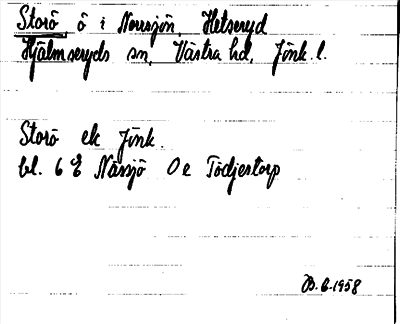 Storö, ö i Norrsjön, Hetseryd
Hjälmseryds sn, Västra hd, Jönk. l.
Storö ek Jönk.
bl. 6 E Nässjö 0 e Tödjestorp
B. 6. 1958